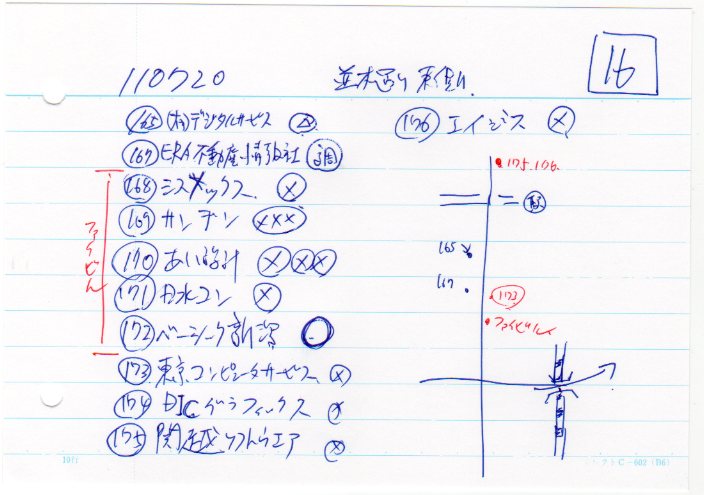 16
110720
並木通り 東側
165 (有)デジタルサービス △
167 ERA不動産情報社 調
168 シスメックス ×
169 サンデン ×××
170 あい設計 ×××
171 日水コン ×
172 ベーシック計算 ○
173 東京コンピュータサービス ×
174 DICグラフィックス ×
175 関越ソフトウエア ×
176 エイジス ×
175.176.
165
167
173
ファイビル
10行
C-602 (B6)